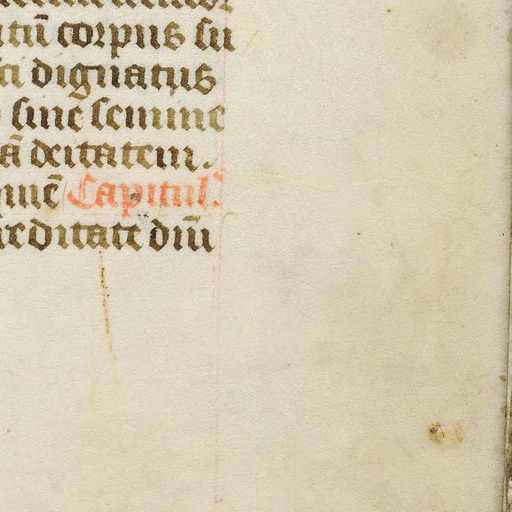 tū corpus su
ci dignatus
sine semine
ā deitatem.
Capitul'
reditate dn̄i